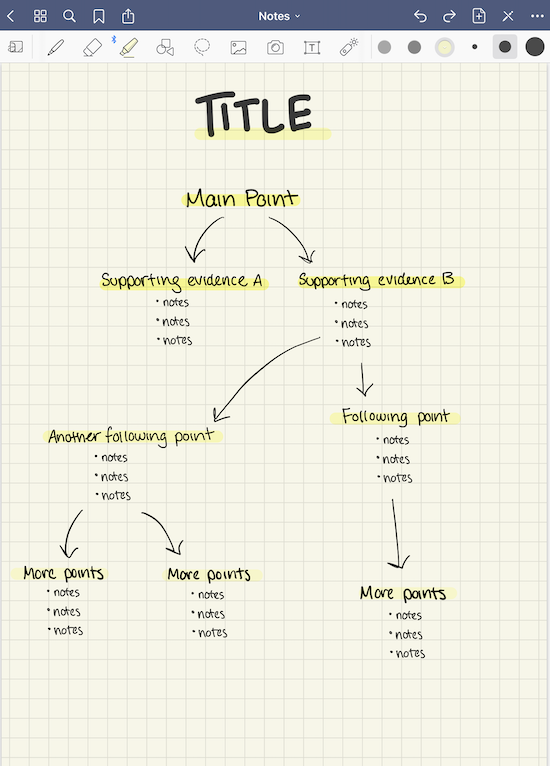 Notes
T
TITLE
Main Point
Supporting evidence A
• notes
• notes
• notes
Supporting evidence B
• notes
• notes
• notes
Another following point
• notes
• notes
• notes
Following point
• notes
• notes
• notes
More points
• notes
• notes
• notes
More points
• notes
• notes
• notes
More points
• notes
• notes
• notes